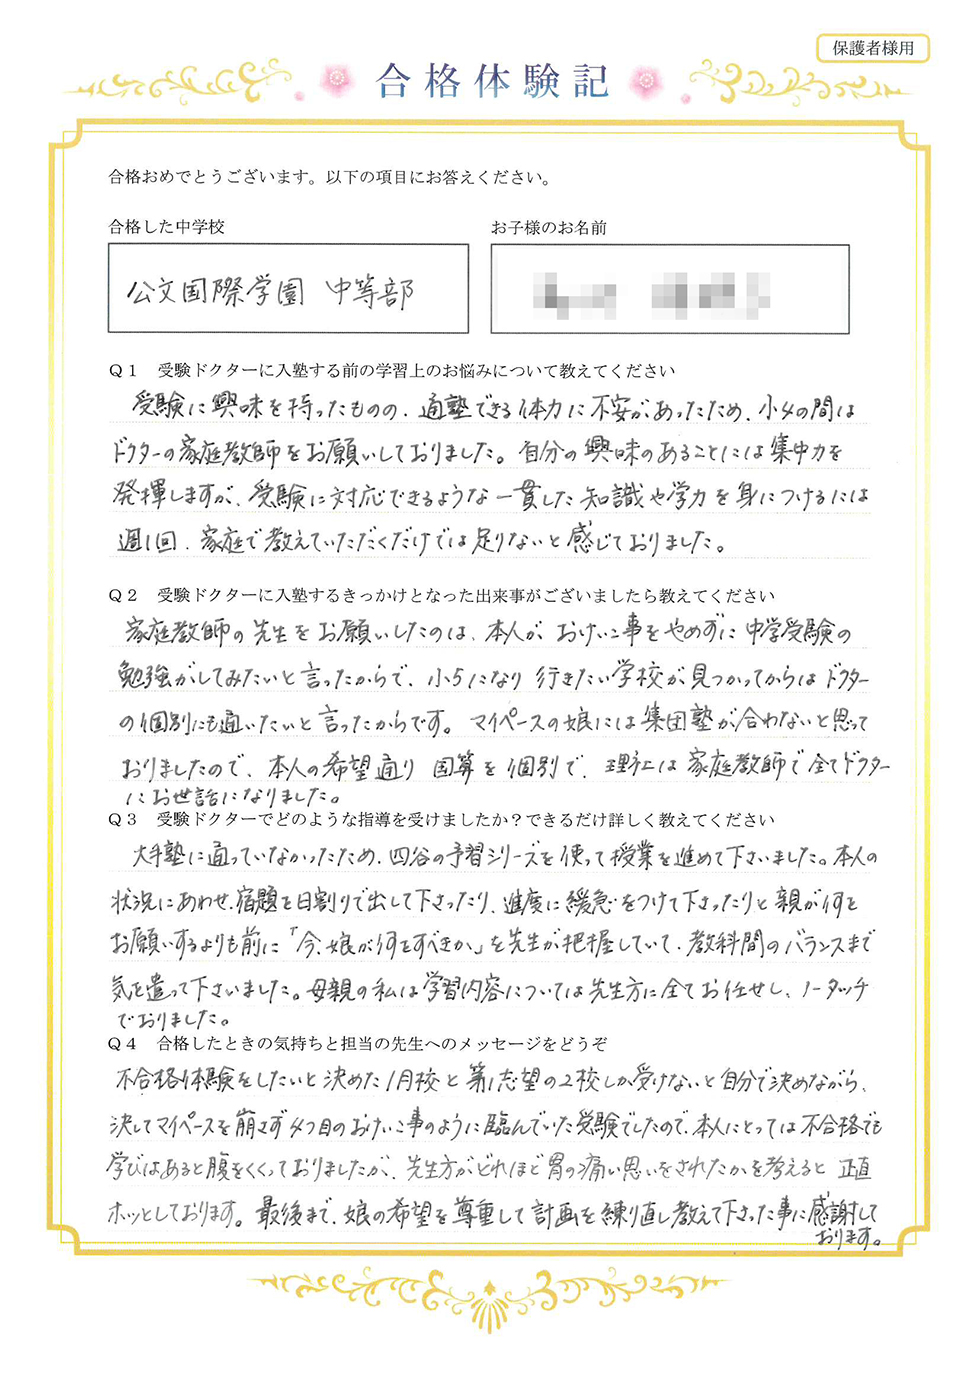 保護者様用
合格体験記
合格おめでとうございます。以下の項目にお答えください。
合格した中学校
お子様のお名前
公文国際学園 中等部
Q1 受験ドクターに入塾する前の学習上のお悩みについて教えてください
受験に興味を持ったものの、通塾できる体力に不安があったため、小4の間は
ドクターの家庭教師をお願いしておりました。自分の興味のあることには集中力を
発揮しますが、受験に対応できるような一貫した知識や学力を身につけるには
週1回、家庭で教えていただくだけでは足りないと感じておりました。
Q2 受験ドクターに入塾するきっかけとなった出来事がございましたら教えてください
家庭教師の先生をお願いしたのは、本人が、おけいこ事をやめずに中学受験の
勉強がしてみたいと言ったからで、小5になり行きたい学校が見つかってからはドクター
の個別にも通いたいと言ったからです。マイペースの娘には集団塾が合わないと思って
おりましたので、本人の希望通り国算を個別で、理社は家庭教師で全てドクター
にお世話になりました。
Q3 受験ドクターでどのような指導を受けましたか？できるだけ詳しく教えてください
大手塾に通っていなかったため、四谷の予習シリーズを使って授業を進めて下さいました。本人の
状況にあわせ、宿題を日割りで出して下さったり、進度に緩急をつけて下さったりと親が何を
お願いするよりも前に「今、娘が何をすべきか」を先生が把握していて、教科間のバランスまで
気を遣って下さいました。母親の私は学習内容については先生方に全てお任せし、ノータッチ
でおりました。
Q4 合格したときの気持ちと担当の先生へのメッセージをどうぞ
不合格体験をしたいと決めた1月校と第1志望の2校しか受けないと自分で決めながら、
決してマイペースを崩さず4つ目のおけいこ事のように臨んでいた受験でしたので、本人にとっては不合格でも
学びはあると腹をくくっておりましたが、先生方がどれほど胃の痛い思いをされたかを考えると正直
ホッとしております。最後まで、娘の希望を尊重して計画を練り直し教えて下さった事に感謝して
おります。